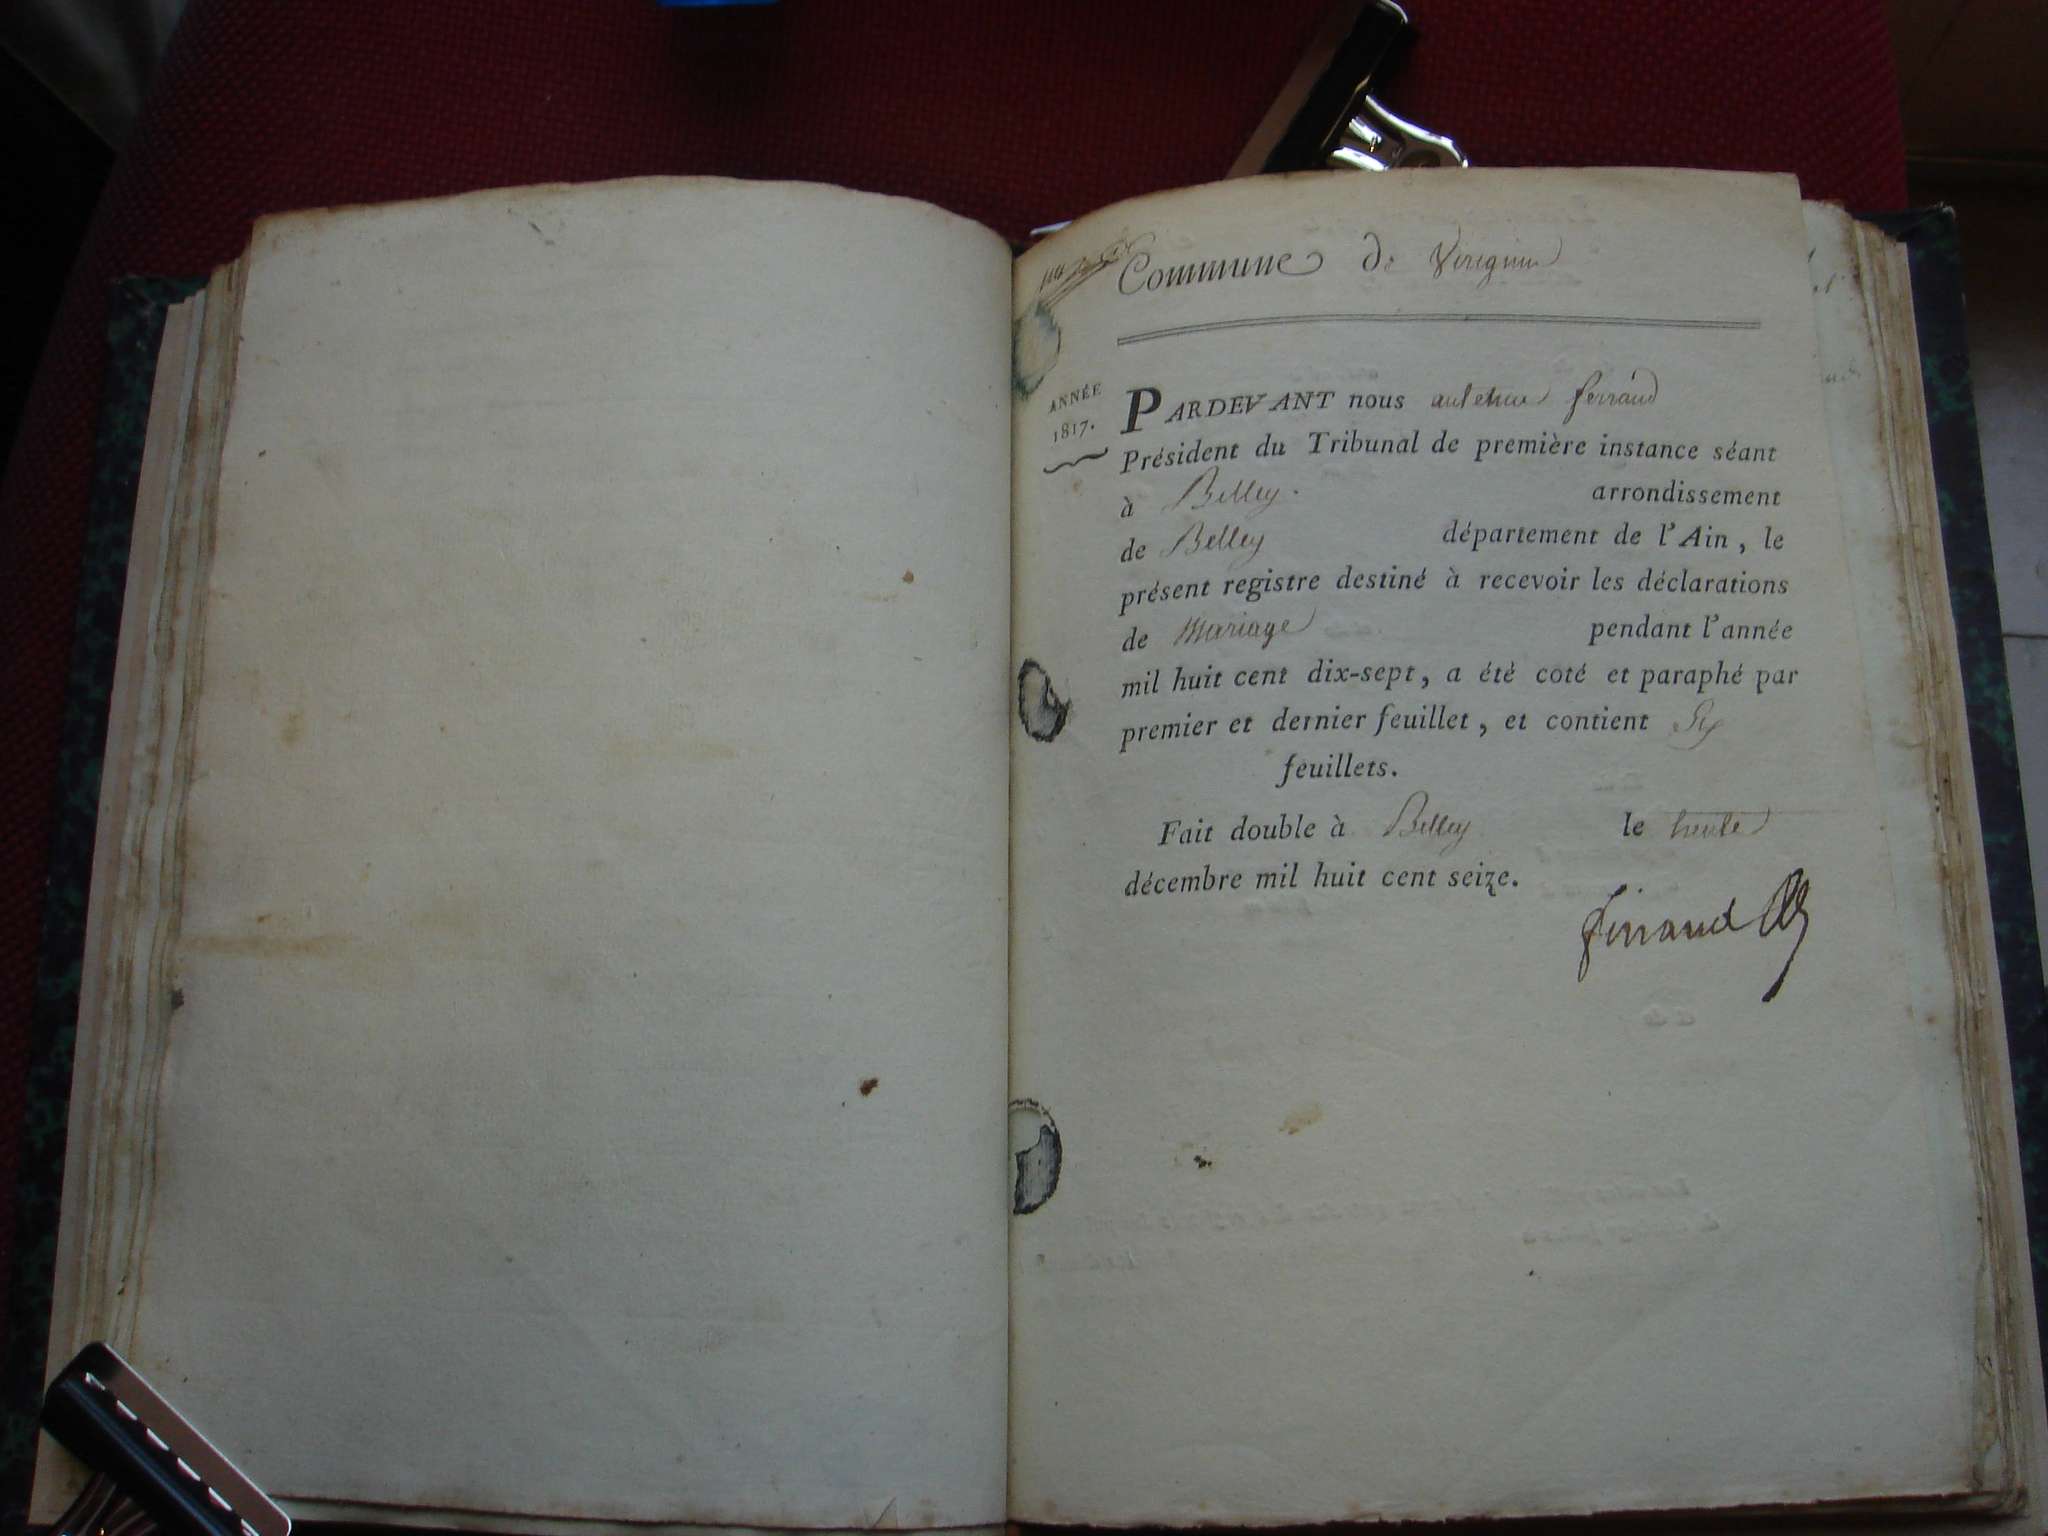 Commune de Virignin
ANNÉE
1817.
PARDEVANT nous anthelme ferrand
Président du Tribunal de première instance séant
à Belley. arrondissement
de Belley département de l'Ain, le
présent registre destiné à recevoir les déclarations
de Mariage pendant l'année
mil huit cent dix-sept, a été coté et paraphé par
premier et dernier feuillet, et contient Six
feuillets.
Fait double à Belley le trente
décembre mil huit cent seize.
ferrand